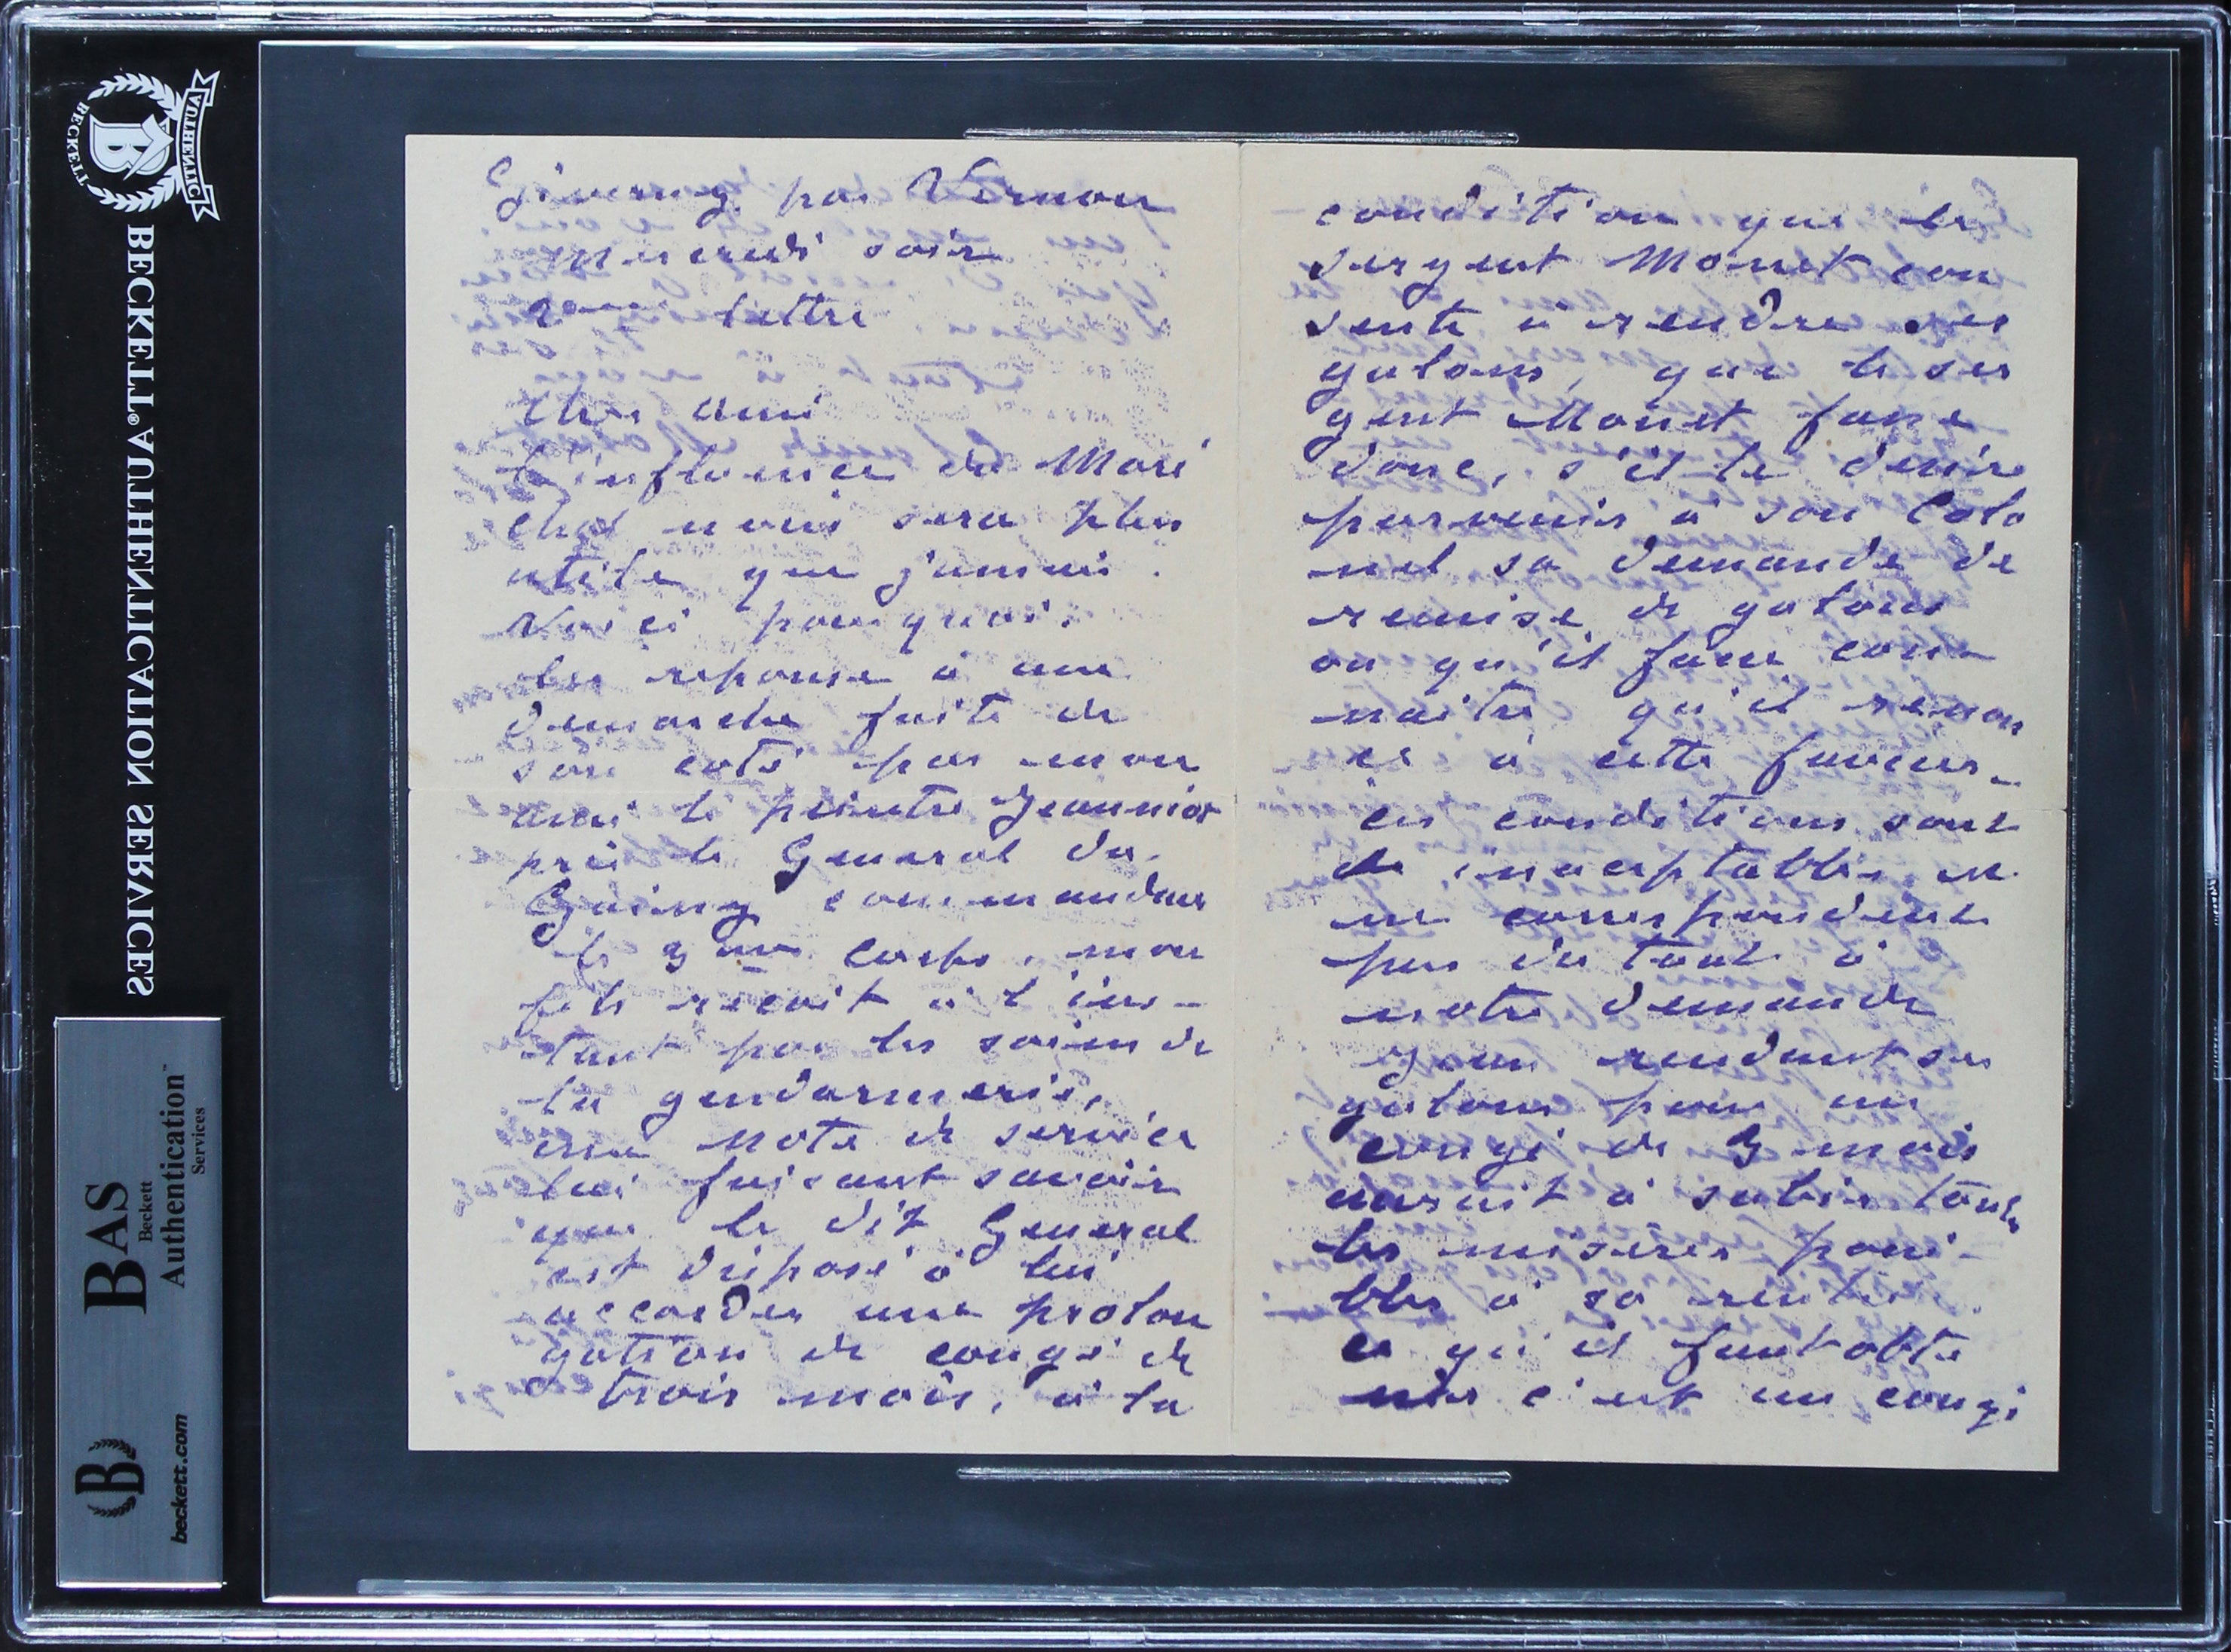 Giverny par Vernon
mercredi soir
2eme lettre
cher ami
l'influence de Maré
chal nous sera plus
utile que jamais.
Voici pourquoi.
en reponse à une
demarche faite de
son coté par mon
ami le peintre Jeanniot
près le General de
commandant
le 3eme corps, mon
fils reçoit à l'ins-
tant par les soins de
la gendarmerie,
une Note de service
lui faisant savoir
que le dit General
est disposé à lui
accorder une prolon
gation de congé de
trois mois, à la
condition que le
sergent Monet con
sente à rendre ses
galons, que le ser
gent Monet fasse
donc, s'il le désire
parvenir à son Colo
nel sa demande de
remise de galons
ou qu'il fasse con-
naitre qu'il renon
ce à cette faveur-
ces conditions sont
inacceptables et
ne correspondent
pas du tout à
notre demande
Jean rendant ses
galons pour un
congé de 3 mois
aurait à subir toutes
les misères possi-
bles à sa rentrée.
ce qu'il faut obte
nir c'est un congé
BECKETT
AUTHENTIC
B
BECKETT® AUTHENTICATION SERVICES
BAS
Beckett
Authentication™
Services
B
beckett.com